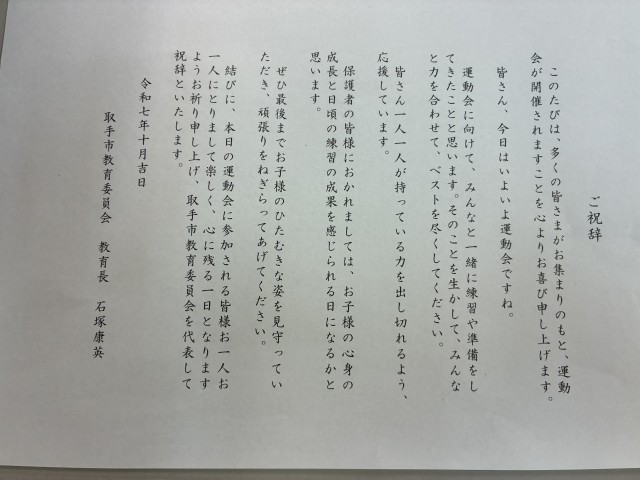 ご祝辞
このたびは、多くの皆さまがお集まりのもと、運動
会が開催されますことを心よりお喜び申し上げます。
皆さん、今日はいよいよ運動会ですね。
運動会に向けて、みんなと一緒に練習や準備をし
てきたことと思います。そのことを生かして、みんな
と力を合わせて、ベストを尽くしてください。
皆さん一人一人が持っている力を出し切れるよう、
応援しています。
保護者の皆様におかれましては、お子様の心身の
成長と日頃の練習の成果を感じられる日になるかと
思います。
ぜひ最後までお子様のひたむきな姿を見守ってい
ただき、頑張りをねぎらってあげてください。
結びに、本日の運動会に参加される皆様お一人お
一人にとりまして楽しく、心に残る一日となります
ようお祈り申し上げ、取手市教育委員会を代表して
祝辞といたします。
令和七年十月吉日
取手市教育委員会 教育長 石塚康英